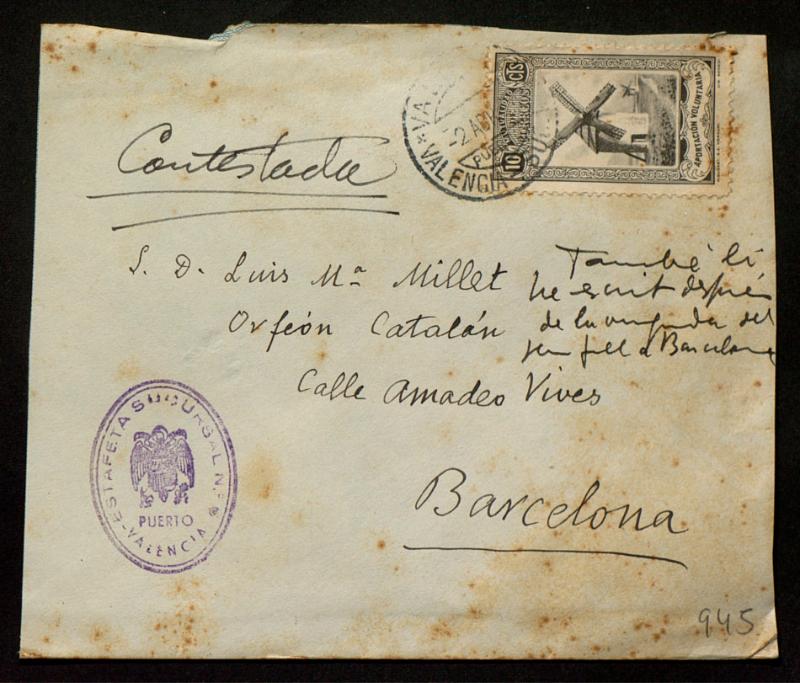 Contestada
S. D. Luis Mª Millet
Orfeón Catalán
Calle Amadeo Vives
Barcelona
També li
he escrit després
de la vinguda del
seu fill a Barcelona
10 CTS
APORTACIÓN VOLUNTARIA
VALENCIA
ESTAFETA SUCURSAL N.º
PUERTO
-VALENCIA-
945